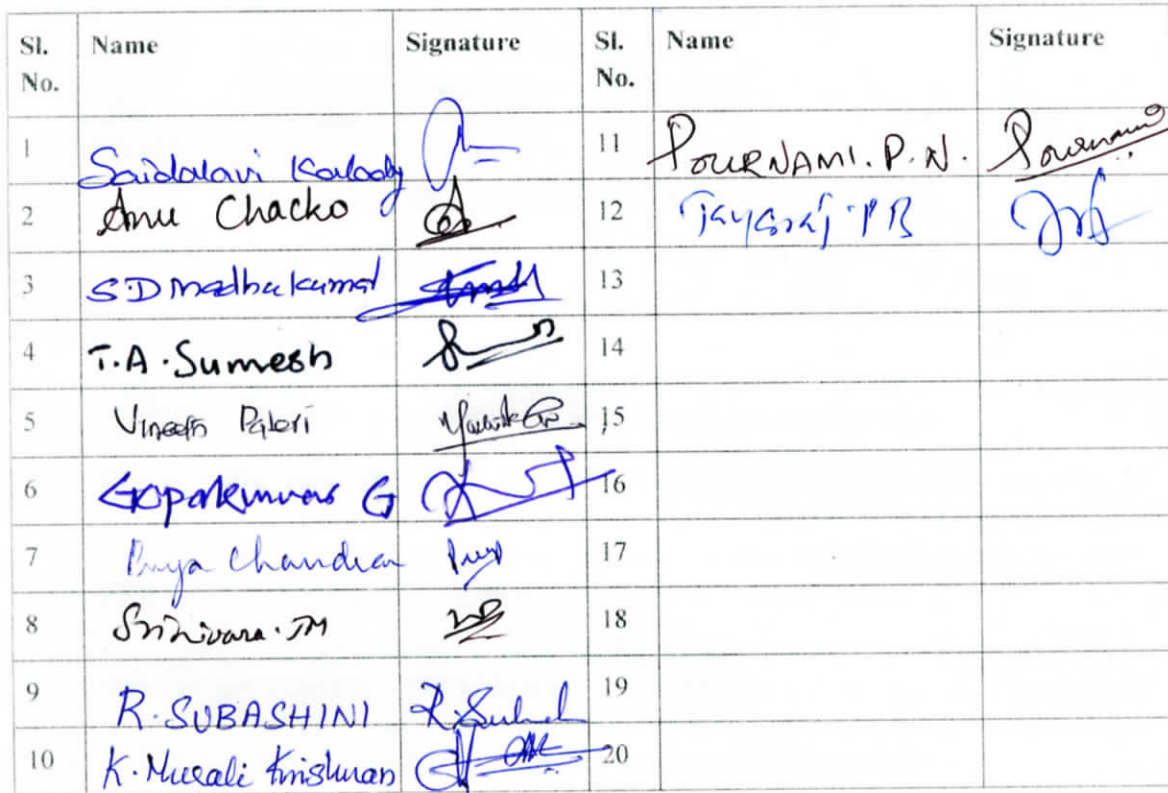 Sl. No. Name Signature Sl. No. Name Signature
1 Saidalavi Kalady 11 POURNAMI. P. N. Pournami
2 Anu Chacko 12 Jayaraj P B
3 S D Madhu kumar 13
4 T. A. Sumesh 14
5 Vineeth Paleri 15
6 Gopakumar G 16
7 Priya Chandran Priya 17
8 Srinivasa. TM 18
9 R. SUBASHINI 19
10 K. Murali Krishnan 20